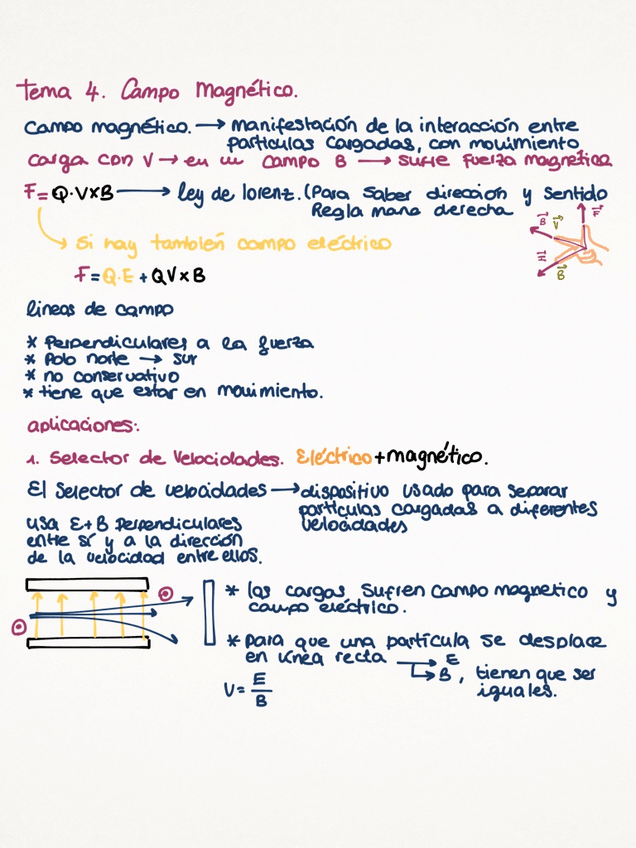 Tema 4. Campo Magnético.
Campo magnético. → manifestación de la interacción entre
partículas cargadas, con movimiento
Carga con V → en un campo B → sufre fuerza magnética
F = Q·V×B → ley de lorenz. (Para saber dirección y sentido
Regla mano derecha
si hay también campo eléctrico
F = Q·E + QV×B
líneas de campo
* Perpendiculares a la fuerza
* Polo norte → sur
* no conservativo
* tiene que estar en movimiento.
aplicaciones:
1. Selector de Velocidades. Eléctrico + magnético.
El Selector de velocidades → dispositivo usado para separar
partículas cargadas a diferentes
velocidades
usa E+B Perpendiculares
entre sí y a la dirección
de la velocidad entre ellos.
* las cargas sufren campo magnetico y
campo eléctrico.
* para que una partícula se desplace
en línea recta → E
→ B, tienen que ser
iguales.
V = E/B
B V F
B